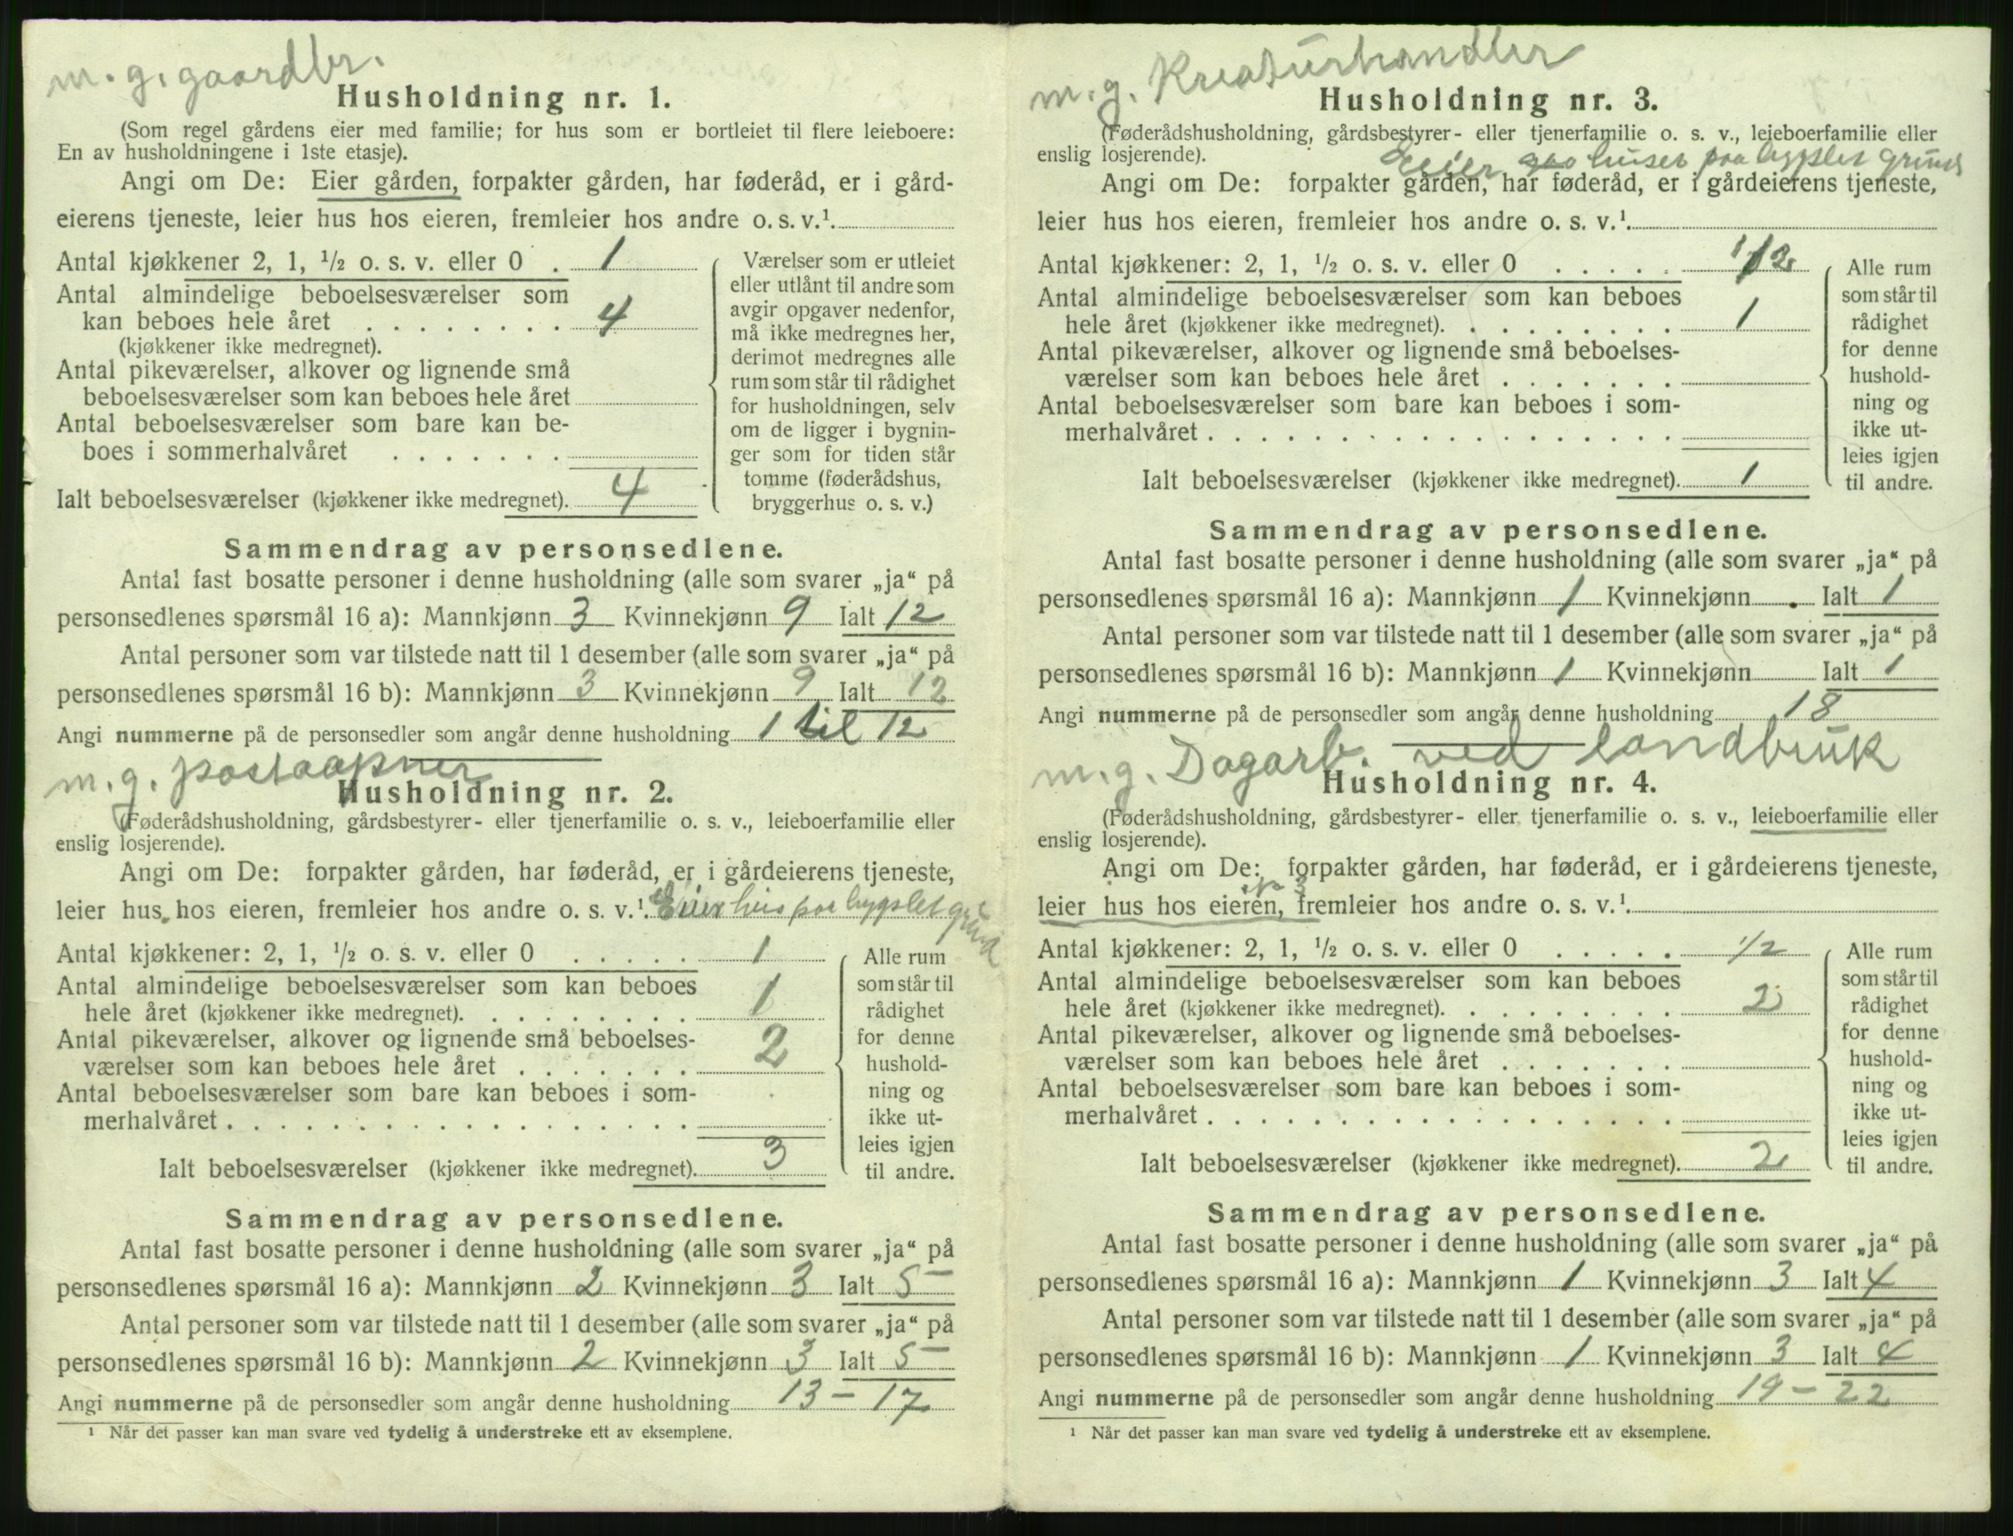 m. g. gaardbr.
Husholdning nr. 1.
(Som regel gårdens eier med familie; for hus som er bortleiet til flere leieboere:
En av husholdningene i 1ste etasje).
Angi om De: Eier gården, forpakter gården, har føderåd, er i gård-
eierens tjeneste, leier hus hos eieren, fremleier hos andre o. s. v.¹
Antal kjøkkener 2, 1, ½ o. s. v. eller 0 . 1
Antal almindelige beboelsesværelser som
kan beboes hele året . . . . . . . . 4
(kjøkkener ikke medregnet).
Antal pikeværelser, alkover og lignende små
beboelsesværelser som kan beboes hele året
Antal beboelsesværelser som bare kan be-
boes i sommerhalvåret . . . . . . .
Ialt beboelsesværelser (kjøkkener ikke medregnet). 4
Værelser som er utleiet
eller utlånt til andre som
avgir opgaver nedenfor,
må ikke medregnes her,
derimot medregnes alle
rum som står til rådighet
for husholdningen, selv
om de ligger i bygnin-
ger som for tiden står
tomme (føderådshus,
bryggerhus o. s. v.)
Sammendrag av personsedlene.
Antal fast bosatte personer i denne husholdning (alle som svarer „ja“ på
personsedlenes spørsmål 16 a): Mannkjønn 3 Kvinnekjønn 9 Ialt 12
Antal personer som var tilstede natt til 1 desember (alle som svarer „ja“ på
personsedlenes spørsmål 16 b): Mannkjønn 3 Kvinnekjønn 9 Ialt 12
Angi nummerne på de personsedler som angår denne husholdning 1 til 12
m. g. postaapner
Husholdning nr. 2.
(Føderådshusholdning, gårdsbestyrer- eller tjenerfamilie o. s. v., leieboerfamilie eller
enslig losjerende).
Angi om De: forpakter gården, har føderåd, er i gårdeierens tjeneste,
leier hus hos eieren, fremleier hos andre o. s. v.¹ Eier hus paa bygslet grund
Antal kjøkkener: 2, 1, ½ o. s. v. eller 0 . . . . . 1
Antal almindelige beboelsesværelser som kan beboes
hele året (kjøkkener ikke medregnet). . . . . . . . . 1
Antal pikeværelser, alkover og lignende små beboelses-
værelser som kan beboes hele året . . . . . . . 2
Antal beboelsesværelser som bare kan beboes i som-
merhalvåret . . . . . . . . . . . . . . . . . .
Ialt beboelsesværelser (kjøkkener ikke medregnet). 3
Alle rum
som står til
rådighet
for denne
hushold-
ning og
ikke ut-
leies igjen
til andre.
Sammendrag av personsedlene.
Antal fast bosatte personer i denne husholdning (alle som svarer „ja“ på
personsedlenes spørsmål 16 a): Mannkjønn 2 Kvinnekjønn 3 Ialt 5
Antal personer som var tilstede natt til 1 desember (alle som svarer „ja“ på
personsedlenes spørsmål 16 b): Mannkjønn 2 Kvinnekjønn 3 Ialt 5
Angi nummerne på de personsedler som angår denne husholdning 13 - 17
¹ Når det passer kan man svare ved tydelig å understreke ett av eksemplene.
m. g. Kreaturhandler
Husholdning nr. 3.
(Føderådshusholdning, gårdsbestyrer- eller tjenerfamilie o. s. v., leieboerfamilie eller
enslig losjerende).
Eier huset paa bygslet grund
Angi om De: forpakter gården, har føderåd, er i gårdeierens tjeneste,
leier hus hos eieren, fremleier hos andre o. s. v.¹
Antal kjøkkener: 2, 1, ½ o. s. v. eller 0 . . . . . 1/2
Antal almindelige beboelsesværelser som kan beboes
hele året (kjøkkener ikke medregnet). . . . . . . . . 1
Antal pikeværelser, alkover og lignende små beboelses-
værelser som kan beboes hele året . . . . . . .
Antal beboelsesværelser som bare kan beboes i som-
merhalvåret . . . . . . . . . . . . . . . . . .
Ialt beboelsesværelser (kjøkkener ikke medregnet). 1
Alle rum
som står til
rådighet
for denne
hushold-
ning og
ikke ut-
leies igjen
til andre.
Sammendrag av personsedlene.
Antal fast bosatte personer i denne husholdning (alle som svarer „ja“ på
personsedlenes spørsmål 16 a): Mannkjønn 1 Kvinnekjønn . Ialt 1
Antal personer som var tilstede natt til 1 desember (alle som svarer „ja“ på
personsedlenes spørsmål 16 b): Mannkjønn 1 Kvinnekjønn Ialt 1
Angi nummerne på de personsedler som angår denne husholdning 18
m. g. Dagarb. ved landbruk
Husholdning nr. 4.
(Føderådshusholdning, gårdsbestyrer- eller tjenerfamilie o. s. v., leieboerfamilie eller
enslig losjerende).
Angi om De: forpakter gården, har føderåd, er i gårdeierens tjeneste,
leier hus hos eieren, fremleier hos andre o. s. v.¹
Antal kjøkkener: 2, 1, ½ o. s. v. eller 0 . . . . . 1/2
Antal almindelige beboelsesværelser som kan beboes
hele året (kjøkkener ikke medregnet). . . . . . . . . 2
Antal pikeværelser, alkover og lignende små beboelses-
værelser som kan beboes hele året . . . . . . .
Antal beboelsesværelser som bare kan beboes i som-
merhalvåret . . . . . . . . . . . . . . . . . .
Ialt beboelsesværelser (kjøkkener ikke medregnet). 2
Alle rum
som står til
rådighet
for denne
hushold-
ning og
ikke ut-
leies igjen
til andre.
Sammendrag av personsedlene.
Antal fast bosatte personer i denne husholdning (alle som svarer „ja“ på
personsedlenes spørsmål 16 a): Mannkjønn 1 Kvinnekjønn 3 Ialt 4
Antal personer som var tilstede natt til 1 desember (alle som svarer „ja“ på
personsedlenes spørsmål 16 b): Mannkjønn 1 Kvinnekjønn 3 Ialt 4
Angi nummerne på de personsedler som angår denne husholdning 19 - 22
¹ Når det passer kan man svare ved tydelig å understreke ett av eksemplene.